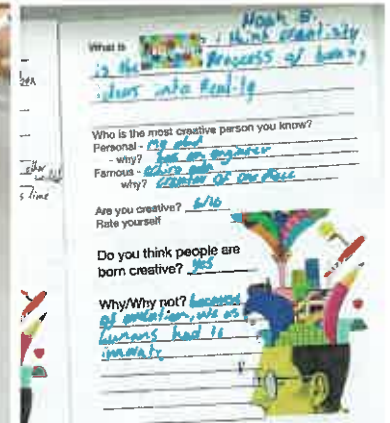 Noah B.
What is : I think creativity
is the Process of turning
ideas into Reality
Who is the most creative person you know?
Personal - my dad
- why? hes an engineer
Famous -
why? creator of one piece
Are you creative? 6/10
Rate yourself
Do you think people are
born creative? yes
Why/Why not? because
of evolution, we as
humans had to